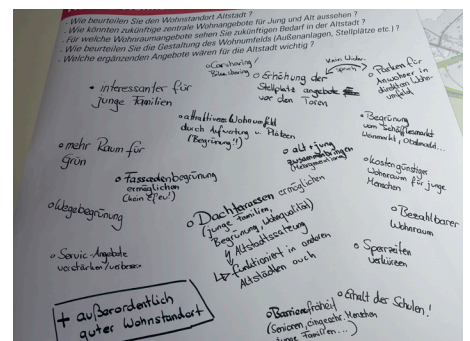 - Wie beurteilen Sie den Wohnstandort Altstadt ?
- Wie könnten zukünftige zentrale Wohnangebote für Jung und Alt aussehen ?
- Für welche Wohnraumangebote sehen Sie zukünftigen Bedarf in der Altstadt ?
- Wie beurteilen Sie die Gestaltung des Wohnumfelds (Außenanlagen, Stellplätze etc.) ?
- Welche ergänzenden Angebote wären für die Altstadt wichtig ?
• interessanter für
junge Familien
o Carsharing/
Bikesharing
o Erhöhung der
Stellplatzangebote
vor den Toren
Kein Wider-
spruch
o Parken für
Anwohner in
direktem Wohn-
umfeld
o attraktives Wohnumfeld
durch Aufwertung v. Plätzen
(Begrünung!!)
o Begrünung
vom Schäfflesmarkt
Weinmarkt, Obstmarkt...
o mehr Raum für
Grün
o alt + jung
zusammenbringen
o Fassadenbegrünung
ermöglichen
(kein Efeu!)
o kostengünstiger
Wohnraum für junge
Menschen
o Wegebegrünung
o Dachterrassen ermöglichen
(junge Familien,
Begrünung, Wohnqualität)
↯ Altstadtsatzung
↳ funktioniert in anderen
Altstädten auch
o Bezahlbarer
Wohnraum
o Servic-Angebote
verstärken/verbessern
o Sperrzeiten
verkürzen
+ außerordentlich
guter Wohnstandort
o Erhalt der Schulen!
o Barrierefreiheit
(Senioren, eingeschr. Menschen
junge Familien...)